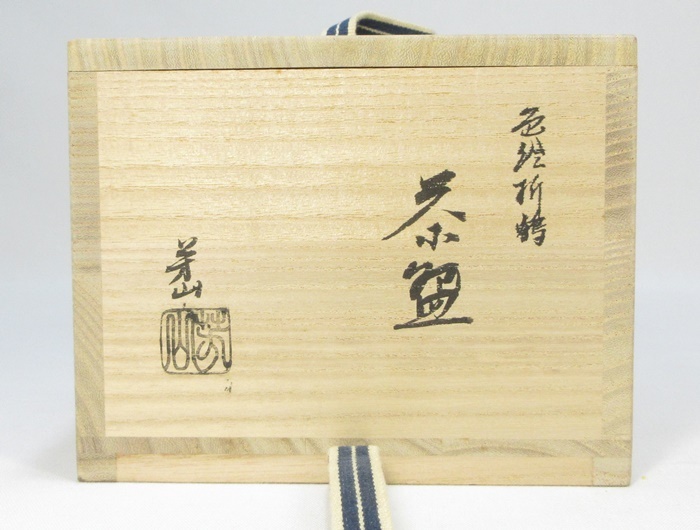 色絵折鶴
茶盌
芳山